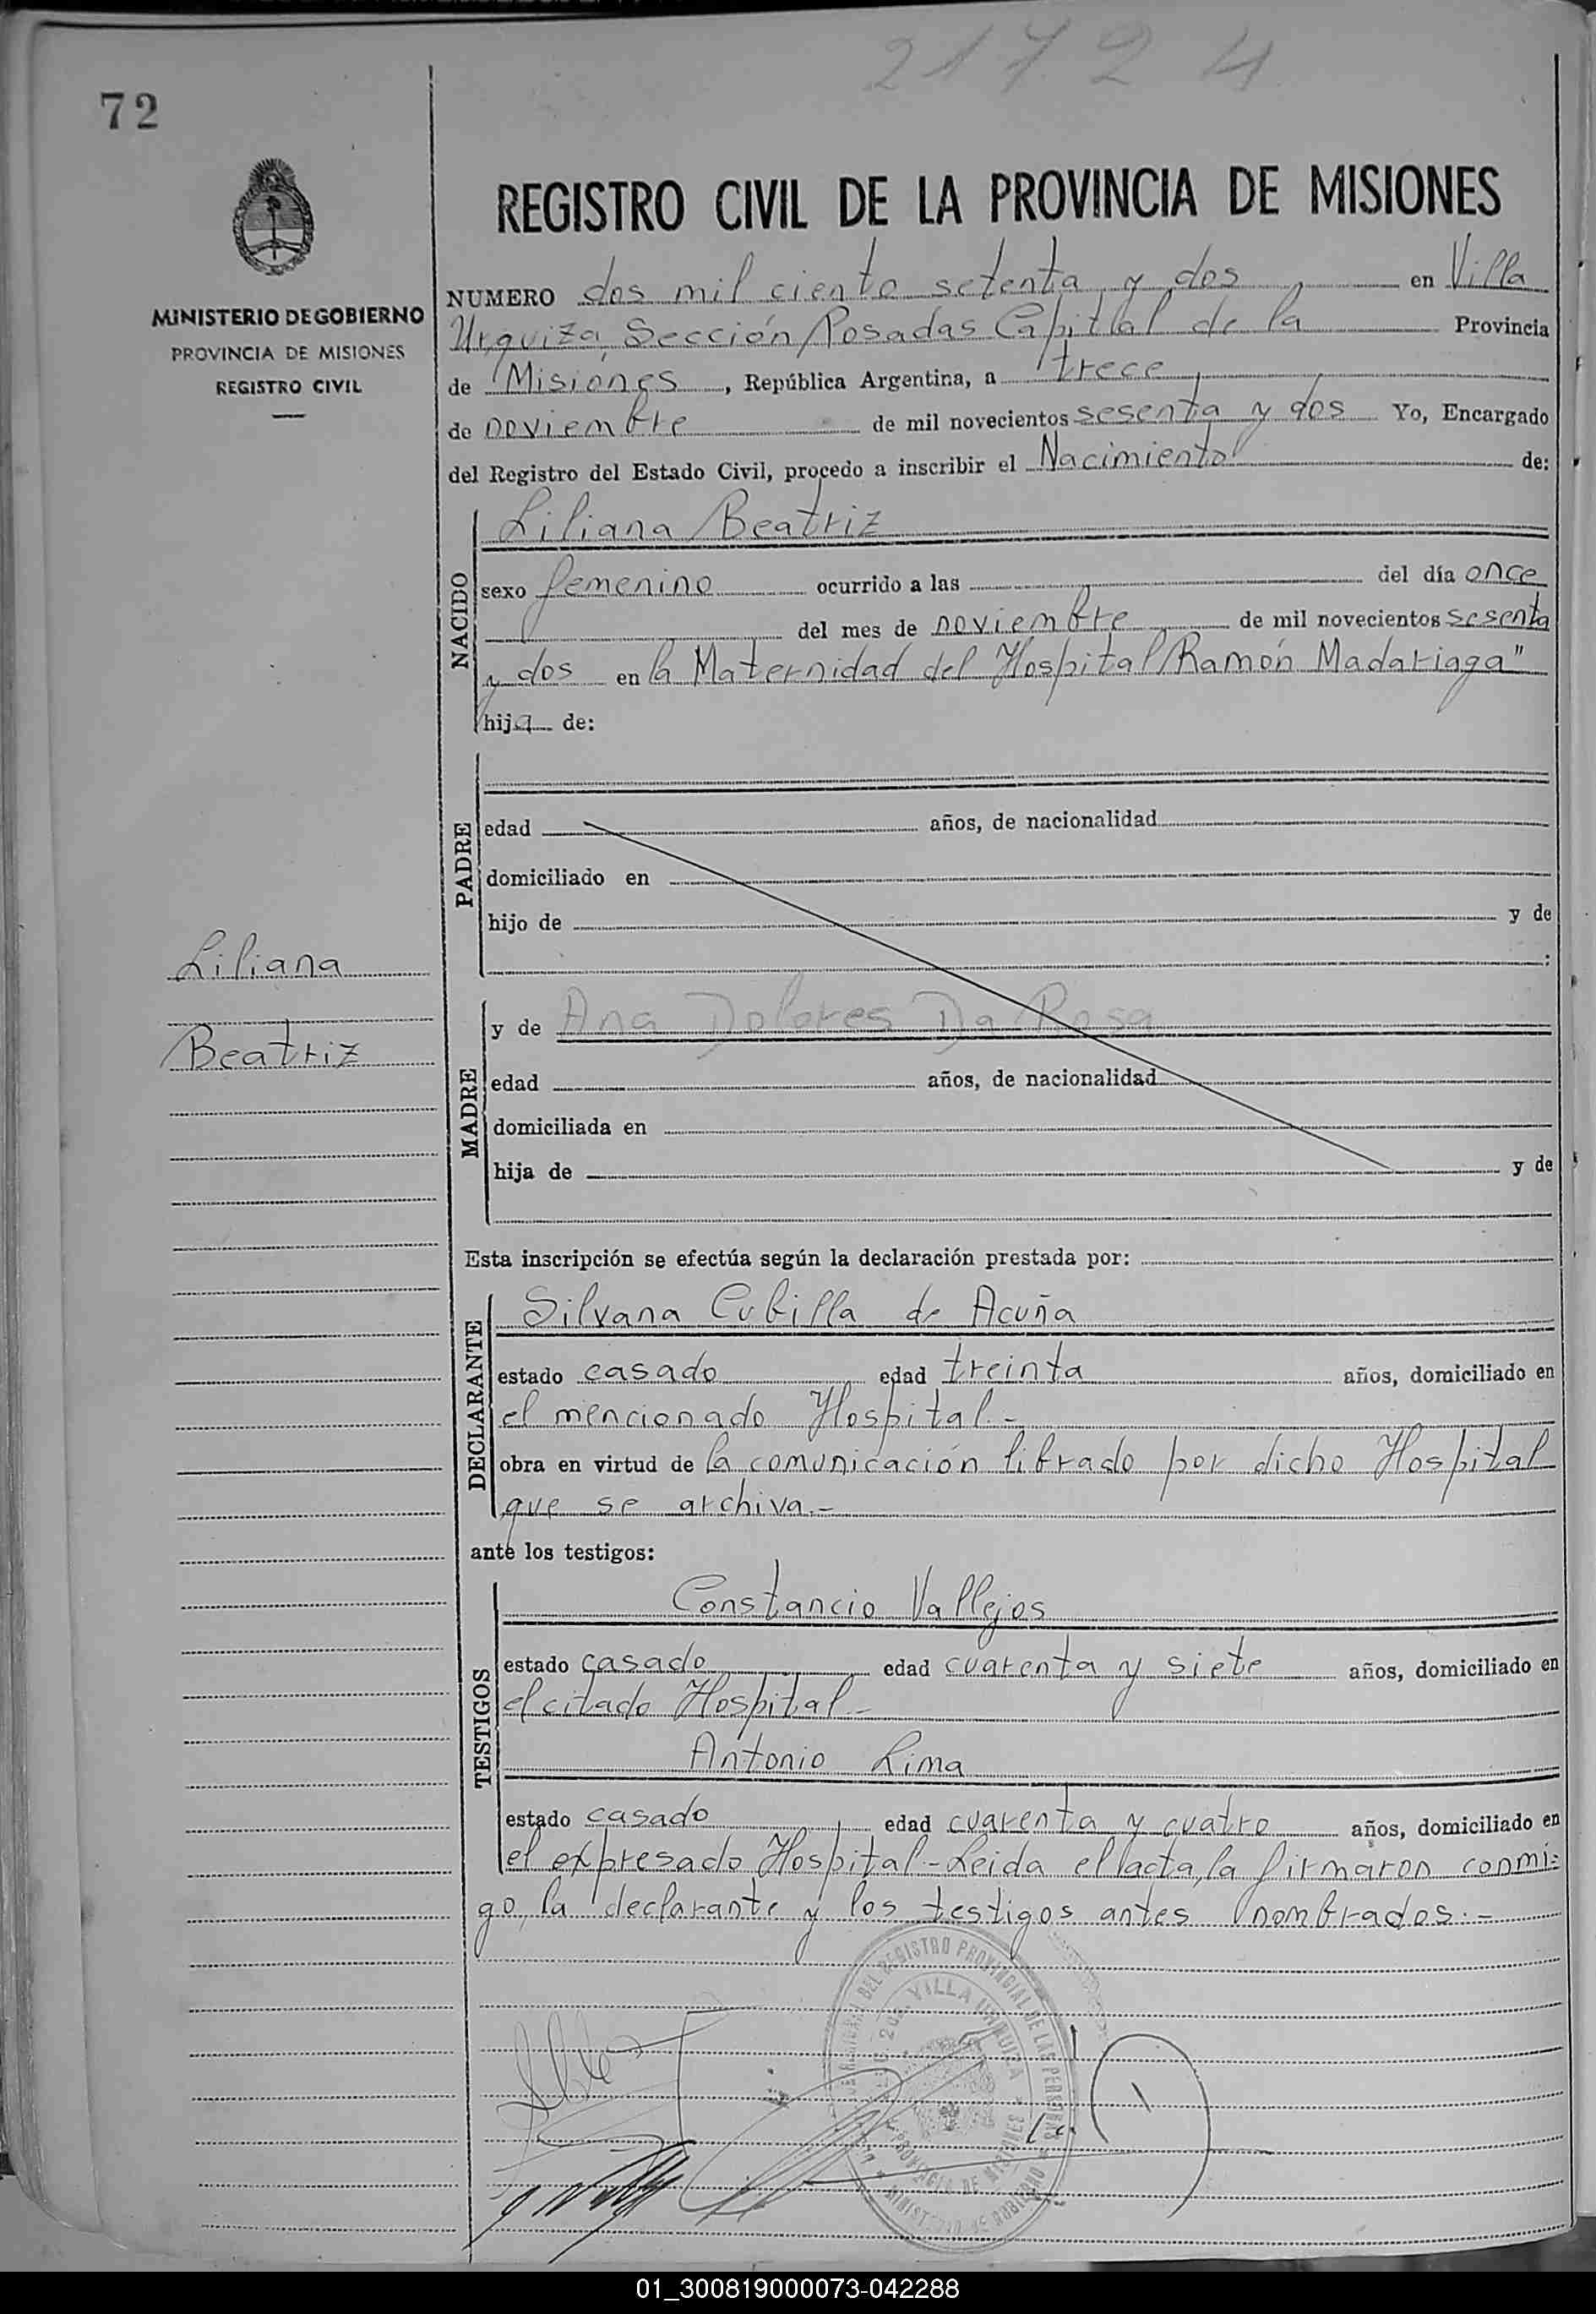 21724
72
REGISTRO CIVIL DE LA PROVINCIA DE MISIONES
MINISTERIO DE GOBIERNO
PROVINCIA DE MISIONES
REGISTRO CIVIL
NUMERO dos mil ciento setenta y dos en Villa
Urquiza, Sección Posadas Capital de la Provincia
de Misiones, República Argentina, a trece
de noviembre de mil novecientos sesenta y dos Yo, Encargado
del Registro del Estado Civil, procedo a inscribir el Nacimiento de:
NACIDO
Liliana Beatriz
sexo femenino ocurrido a las del día once
del mes de noviembre de mil novecientos sesenta
y dos en la Maternidad del Hospital Ramón Madariaga"
hija de:
PADRE
edad años, de nacionalidad
domiciliado en
hijo de y de
:
Liliana
Beatriz
MADRE
y de Ana Dolores Da Rosa
edad años, de nacionalidad
domiciliada en
hija de y de
Esta inscripción se efectúa según la declaración prestada por:
DECLARANTE
Silvana Cubilla de Acuña
estado casado edad treinta años, domiciliado en
el mencionado Hospital.-
obra en virtud de la comunicación librado por dicho Hospital
que se archiva.-
ante los testigos:
TESTIGOS
Constancio Vallejos
estado casado edad cuarenta y siete años, domiciliado en
el citado Hospital.-
Antonio Lima
estado casado edad cuarenta y cuatro años, domiciliado en
el expresado Hospital-Leida el acta, la firmaron conmi=
go, la declarante y los testigos antes nombrados.-
DEL REGISTRO PROVINCIAL DE LAS PERSONAS
VILLA URQUIZA
PROVINCIA DE MISIONES
MINISTERIO DE GOBIERNO
01_300819000073-042288